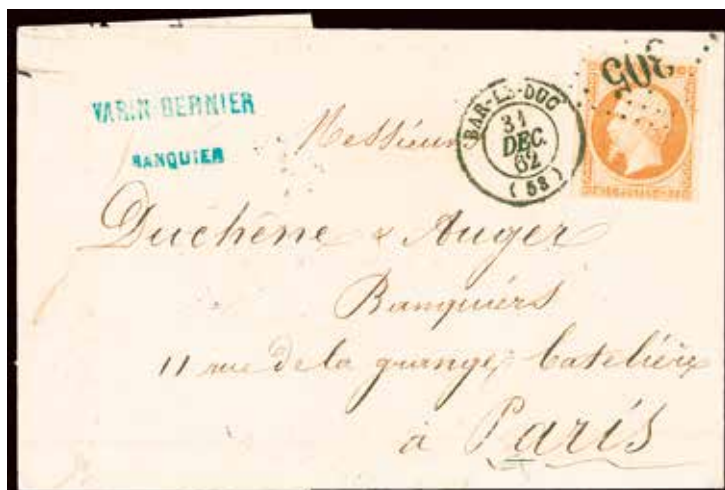 VARIN-BERNIER
BANQUIER
Messieurs
BAR-LE-DUC
31
DEC.
62
(53)
305
Duchêne & Auger
Banquiers
11 rue de la grange batelière
à Paris